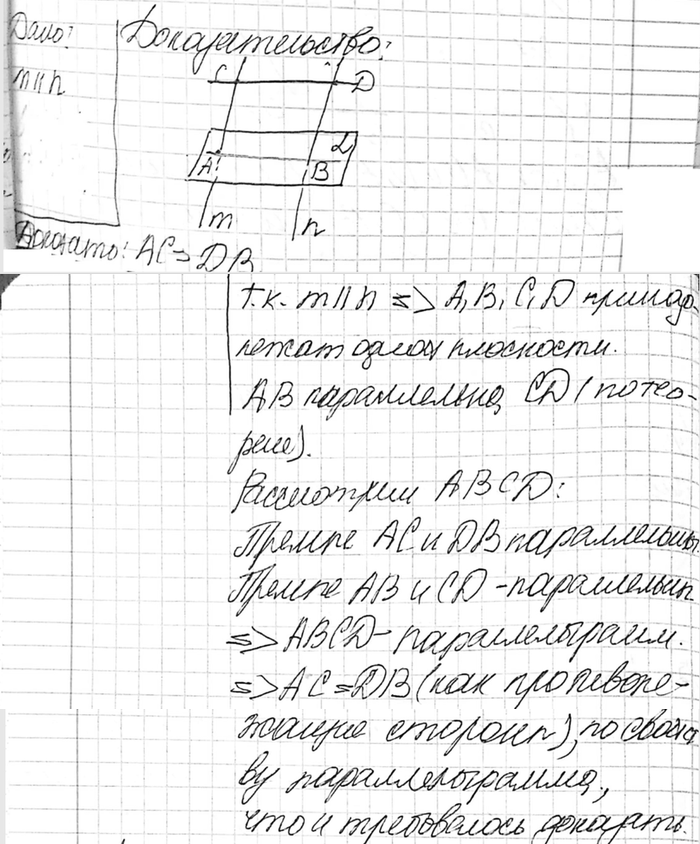 Дано:
Доказательство:
m || n
C
D
A
B
α
m
n
Доказать: AC = DB
т.к. m || n <=> A, B, C, D принад-
лежат одной плоскости.
AB параллельна CD (по тео-
реме).
Рассмотрим ABCD:
Прямые AC и DB параллельны.
Прямые AB и CD - параллельн
=> ABCD - параллелограмм.
=> AC = DB (как противоле-
жащие стороны), по свойст
ву параллелограмма,
что и требовалось доказать.